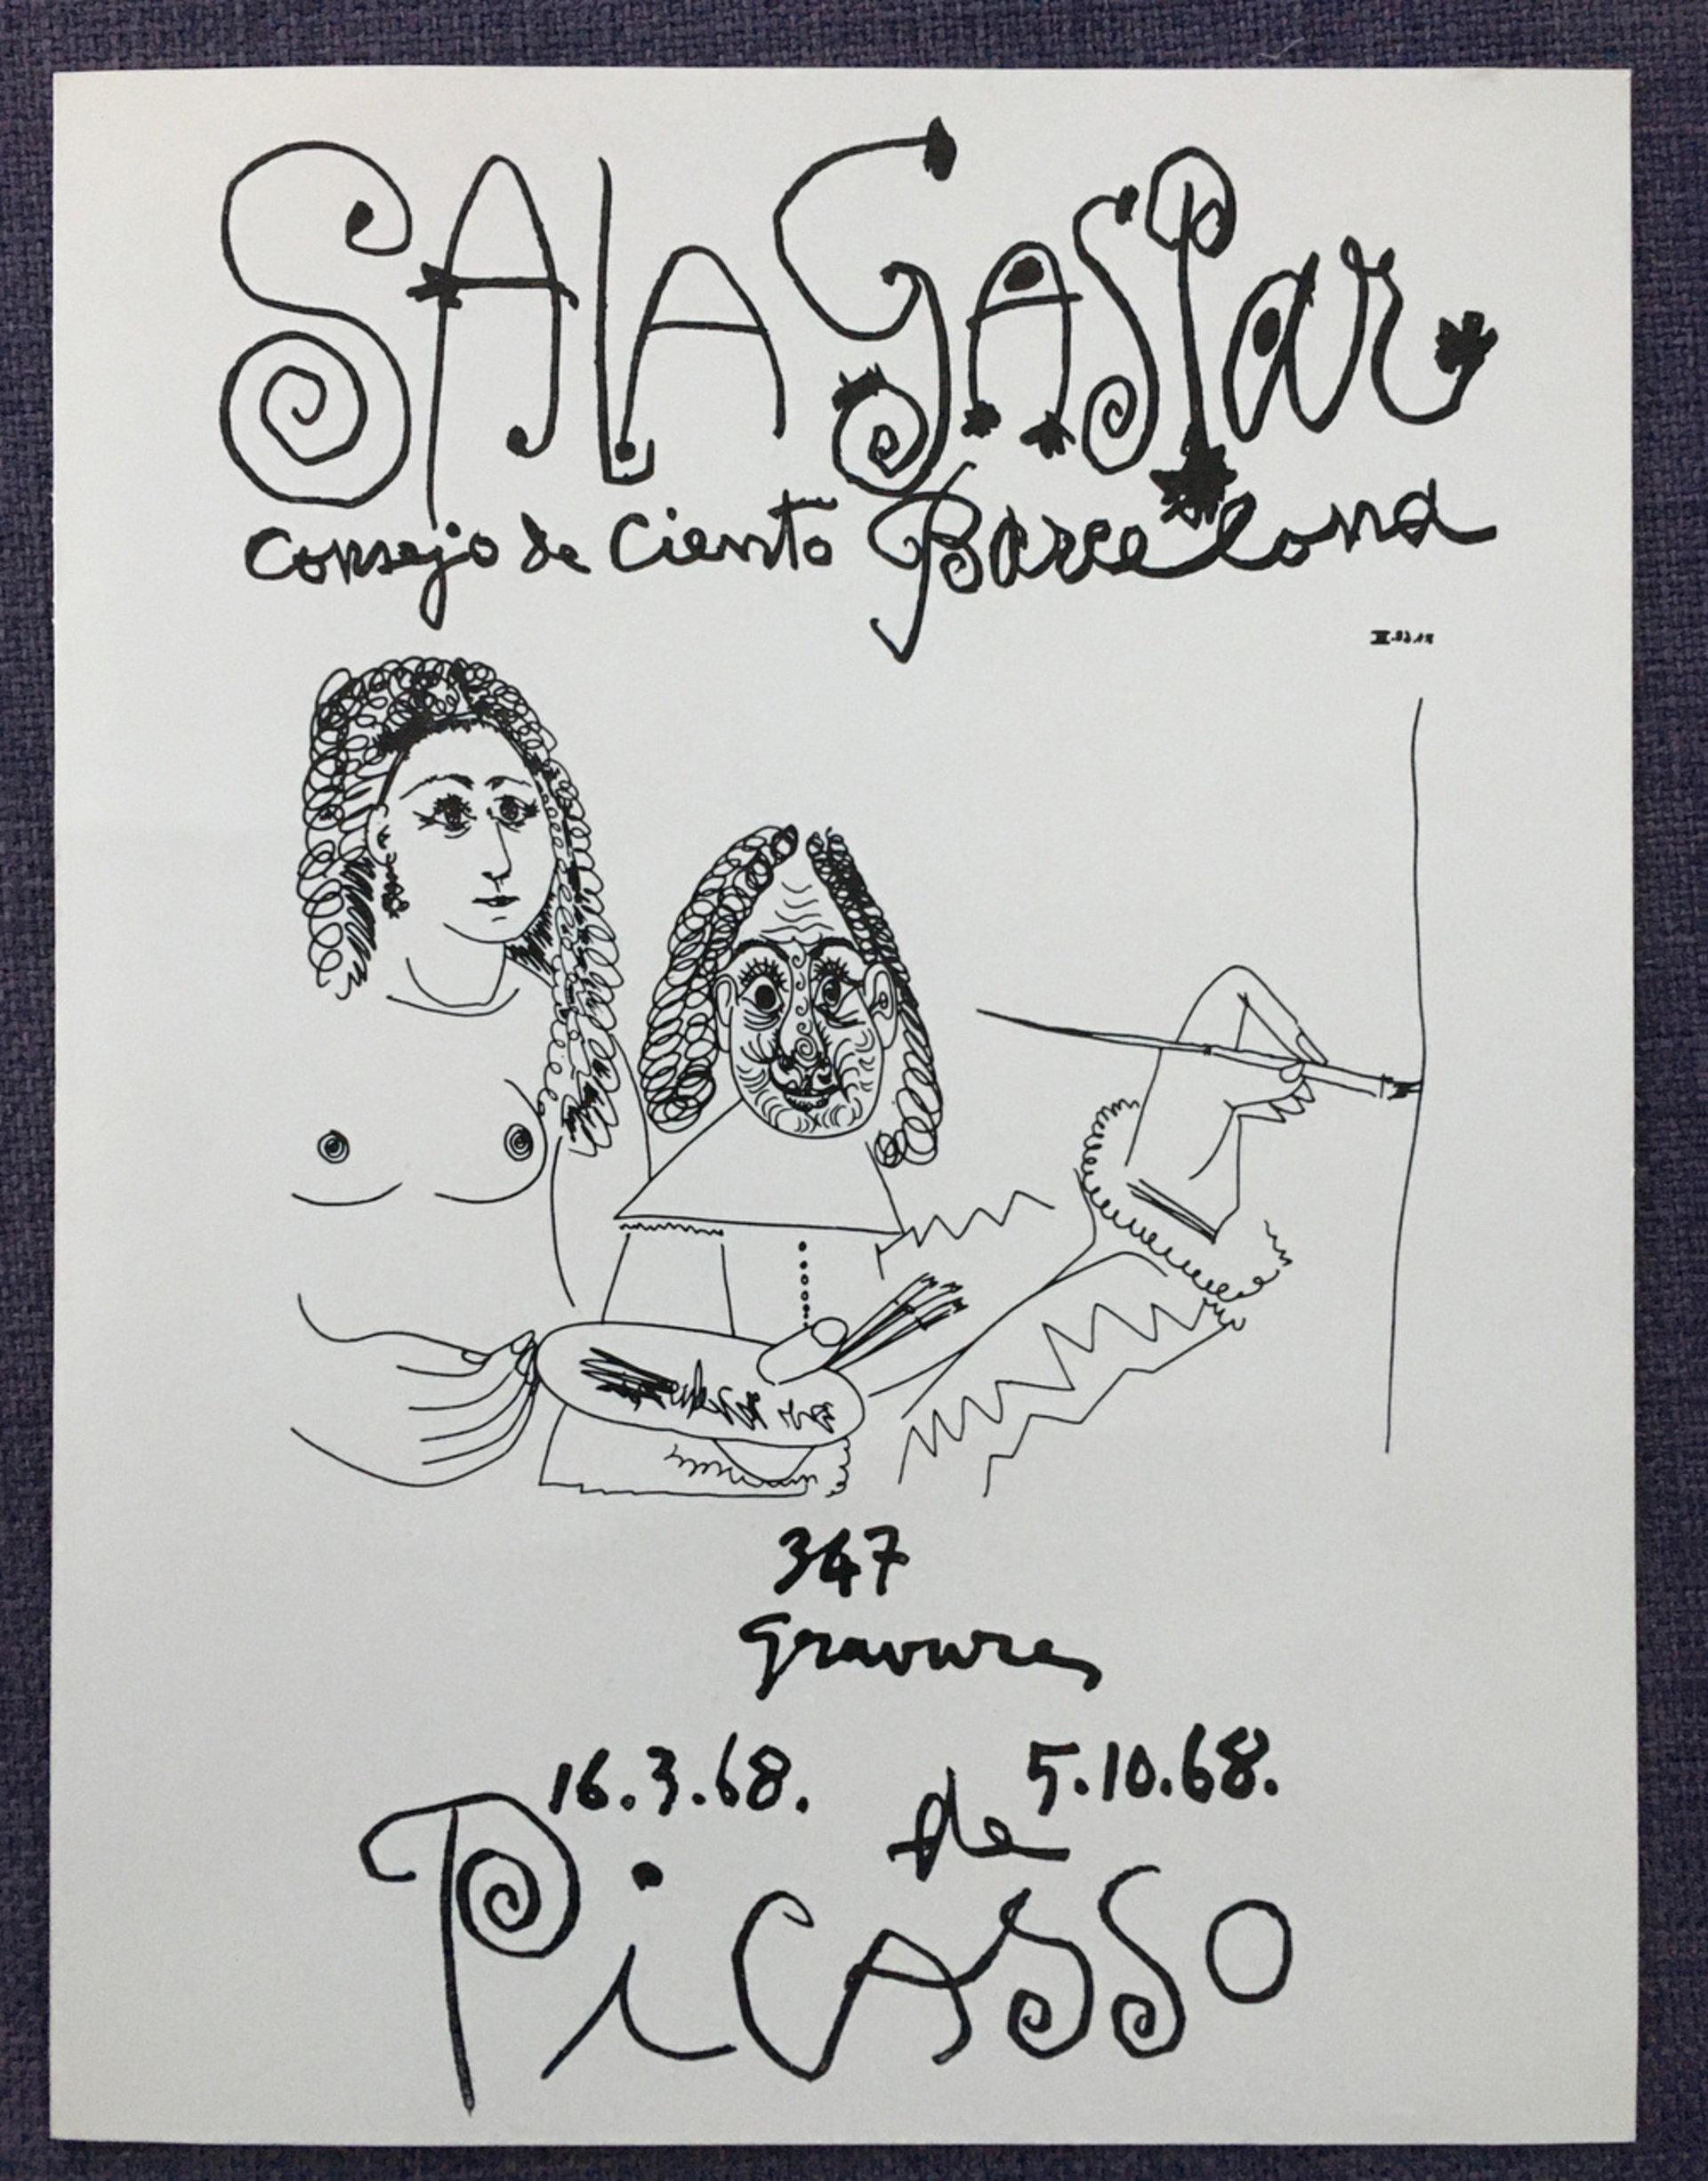 SALA GASPar
Consejo de Ciento Barcelona
347
gravures
16.3.68. de 5.10.68.
PiCASSO